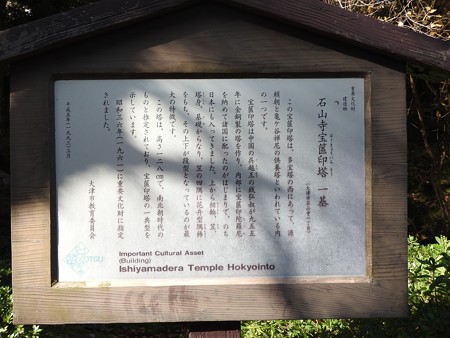 重要文化財
建造物
石山寺宝篋印塔　一基
この宝篋印塔は、多宝塔の西にあって、源
頼朝と亀ケ谷禅尼の供養塔といわれている内
の一つです。
宝篋印塔は中国の呉越王の銭弘俶が九五五
年に金銅製の塔を作り、内部に宝篋印陀羅尼
を納めて諸国に配ったのがはじまりで、のち
日本にも入ってきました。上から相輪、笠、
塔身、基礎からなり、笠の四隅に花弁型隅飾
をもち、その上下が段型となっているのが最
大の特徴です。
この塔は、高さ二二八㎝で、南北朝時代の
ものと推定されており、宝篋印塔の一典型を
示しています。
昭和三六年（一九六一）に重要文化財に指定
されました。
大津市教育委員会
平成五年（一九九三）三月
OTSU
Important Cultural Asset
(Building)
Ishiyamadera Temple Hokyointo